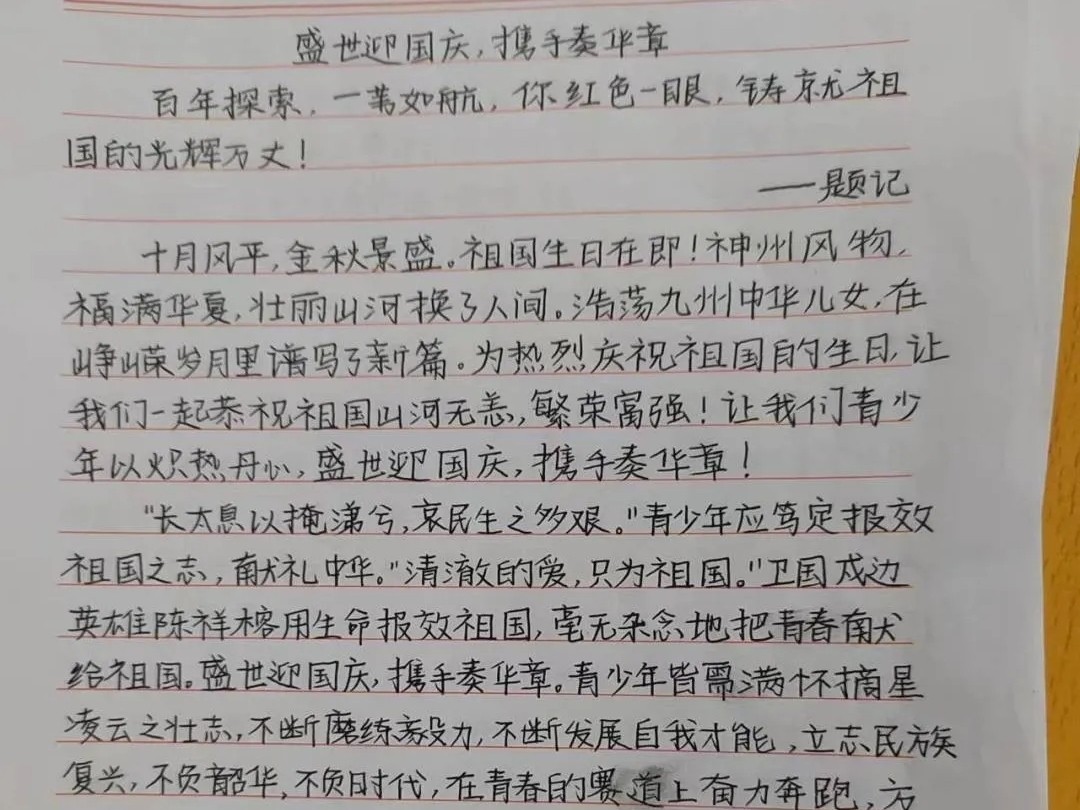 盛世迎国庆,携手奏华章
百年探索,一苇如航,你红色一眼,铸就祖
国的光辉万丈!
——题记
十月风平,金秋景盛。祖国生日在即!神州风物,
福满华夏,壮丽山河换了人间。浩荡九州中华儿女,在
峥嵘岁月里谱写了新篇。为热烈庆祝祖国的生日,让
我们一起恭祝祖国山河无恙,繁荣富强!让我们青少
年以炽热丹心,盛世迎国庆,携手奏华章!
"长太息以掩涕兮,哀民生之多艰。"青少年应笃定报效
祖国之志,献礼中华。"清澈的爱,只为祖国。"卫国戍边
英雄陈祥榕用生命报效祖国,毫无杂念地把青春献
给祖国。盛世迎国庆,携手奏华章。青少年皆需满怀摘星
凌云之壮志,不断磨练毅力,不断发展自我才能,立志民族
复兴,不负韶华,不负时代,在青春的赛道上奋力奔跑,方